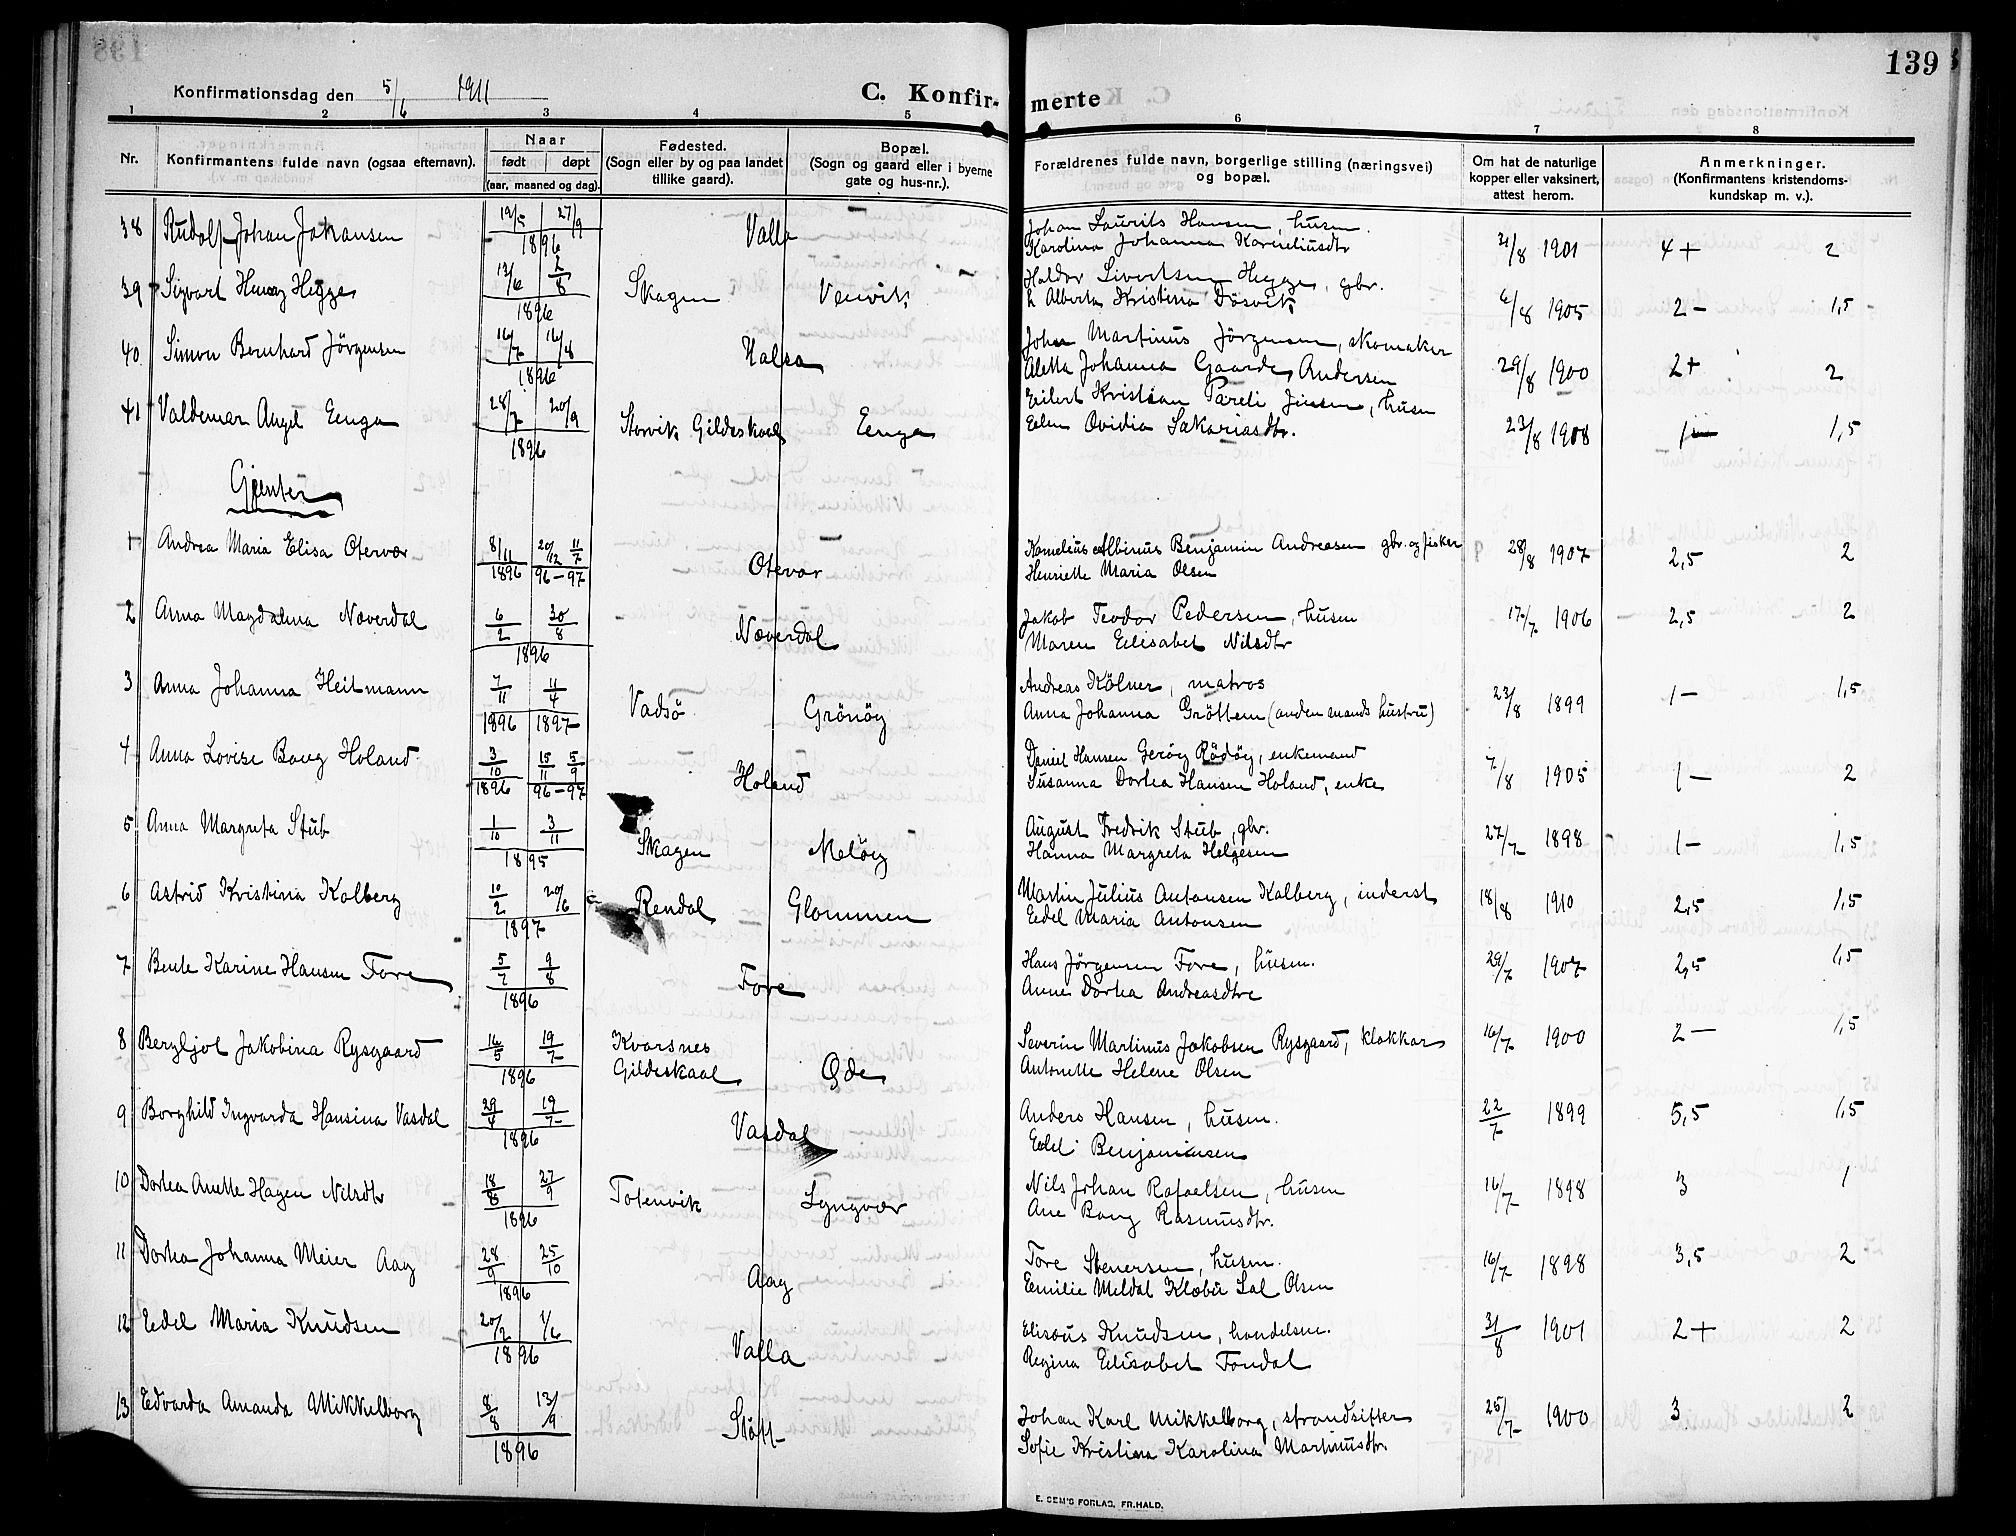 139
Konfirmationsdag den 5/6 1911
C. Konfir-merte
1 2 3 4 5 6 7 8
Nr. Konfirmantens fulde navn (ogsaa efternavn). Naar født døpt (aar, maaned og dag). Fødested. (Sogn eller by og paa landet tillike gaard). Bopæl. (Sogn og gaard eller i byerne gate og hus-nr.). Forældrenes fulde navn, borgerlige stilling (næringsvei) og bopæl. Om hat de naturlige kopper eller vaksinert, attest herom. Anmerkninger. (Konfirmantens kristendoms-kundskap m. v.).
38 Rudolf Johan Johansen 19/5 27/9 1896 Valla Johan Laurits Hansen, husm. 31/8 1901 4+ 2
Karolina Johanna Korneliusdtr
39 Sigvart Hegge 13/6 2/8 1896 Skagen Venvik Haldor Sivertsen Hegge, gbr. 6/8 1905 2- 1,5
Alberta Kristina Dösvik
40 Simon Bernhard Jörgensen 16/7 16/8 1896 Halsa Johan Martinus Jörgensen, skomaker 29/8 1900 2+ 2
Aletta Johanna Gaarde Andersen
41 Valdemar Angel Eenga 28/7 20/9 1896 Storvik Gildeskaal Eenga Eilert Kristian Pareli Jensen, husm 23/8 1908 1- 1,5
Elen Ovidia Sakariasdtr.
Gjenter
1 Andrea Maria Elisa Otervær 8/11 1896 20/12 11/7 96-97 Otervær Kornelius Albinus Benjamin Andreasen gbr. og fisker 28/8 1907 2,5 2
Henriette Maria Olsen
2 Anna Magdalena Næverdal 6/2 30/8 1896 Næverdal Jakob Teodor Pedersen, husm 17/7 1906 2,5 2
Maren Elisabet Nilsdtr
3 Anna Johanna Heitmann 7/11 1896 11/4 1897 Vadsö Grönöy Andreas Kölner, matros 23/8 1899 1- 1,5
Anna Johanna Gröttem (anden mands hustru)
4 Anna Lovise Bang Holand 3/10 1896 15/11 5/9 96-97 Holand Daniel Hansen Geröy Rödöy, enkemand 7/8 1905 1- 2
Susanna Dortea Hansen Holand, enke
5 Anna Margreta Stub 1/10 3/11 1895 Skagen Melöy August Fredrik Stub, gbr. 27/7 1898 1- 1,5
Hanna Margreta Helgesen
6 Astrid Kristina Kalberg 10/2 20/6 1897 Rendal Glommen Martin Julius Antonsen Kalberg, inderst 18/8 1910 2,5 1,5
Edel Maria Antonsen
7 Bente Karine Hansen Fore 5/7 9/8 1896 Fore Hans Jörgensen Fore, husm. 29/7 1907 2,5 1,5
Anne Dortea Andreasdtr
8 Bergljot Jakobina Rysgaard 16/5 19/7 1896 Kvarsnes Gildeskaal Øde Severin Martinus Jakobsen Rysgaard, klokkar 16/7 1900 2- 1,5
Antonette Helene Olsen
9 Borghild Ingvarda Hansina Vasdal 29/4 19/7 1896 Vasdal Anders Hansen, husm. 22/7 1899 5,5 1,5
Edel Benjaminsen
10 Dortea Anette Hagen Nilsdtr 18/8 27/9 1896 Totenvik Lyngvær Nils Johan Rafaelsen, husm 16/7 1898 3 1
Ane Bang Rasmusdtr.
11 Dortea Johanna Meier Aag 28/9 25/10 1896 Aag Tore Stenersen, husm. 16/7 1898 3,5 2
Emilie Meldal Olsen
12 Edel Maria Knudsen 20/2 1/6 1896 Valla Elisæus Knudsen, handelsm. 31/8 1901 2+ 2
Regina Elisabet Fondal
13 Edvarda Amanda Mikkelborg 8/8 13/9 1896 Stött Johan Karl Mikkelborg, strandsitter 25/7 1900 3 2
Sofie Kristina Karolina Martinusdtr.
E. SEM'S FORLAG, FR.HALD.